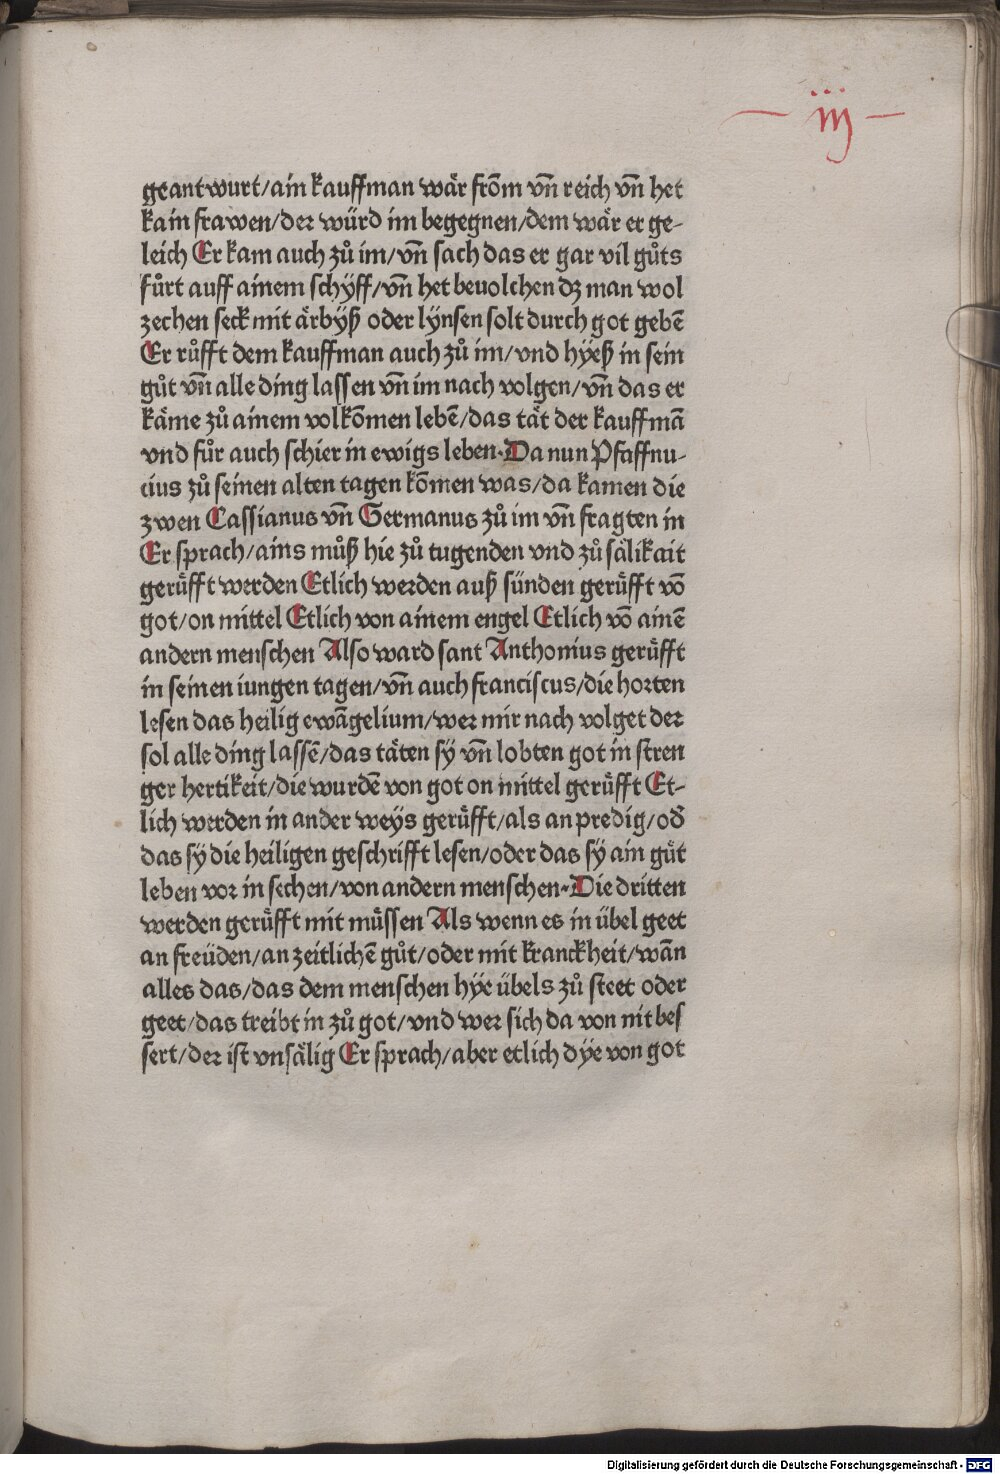 — iij —
geantwurt/ain kauffman wär from̄ vn̄ reich vn̄ het
kain frawen/der würd im begegnen/dem wär er ge-
leich Er kam auch zů im/vn̄ sach das er gar vil gůts
fůrt auff ainem schyff/vn̄ het beuolchen dz man wol
zechen seck mit ärbÿß oder lÿnsen solt durch got gebē
Er růfft dem kauffman auch zů im/vnd hÿeß in sein
gůt vn̄ alle ding lassen vn̄ im nach volgen/vn̄ das er
käme zů ainem volkōmen lebē/das tät der kauffmā
vnd fůr auch schier in ewigs leben·Da nun Pfaffnu-
cius zů seinen alten tagen kōmen was/da kamen die
zwen Cassianus vn̄ Germanus zů im vn̄ fragten in
Er sprach/ains můß hie zů tugenden vnd zů sälikait
gerüfft werden Etlich werden auß sünden gerüfft vō
got/on mittel Etlich von ainem engel Etlich vō ainē
andern menschen Also ward sant Anthonius gerüfft
in seinen iungen tagen/vn̄ auch franciscus/die horten
lesen das heilig ewāgelium/wer mir nach volget der
sol alle ding lassē/das täten sÿ vn̄ lobten got in stren
ger hertikeit/die wurdē von got on mittel gerüfft Et-
lich werden in ander weÿs gerüfft/als an predig/od̄
das sÿ die heiligen geschrifft lesen/oder das sÿ ain gůt
leben vor in sechen/von andern menschen·Die dritten
werden gerüfft mit müssen Als wenn es in übel geet
an freüden/an zeitlichē gůt/oder mit kranckheit/wān
alles das/das dem menschen hÿe übels zů steet oder
geet/das treibt in zů got/vnd wer sich da von nit bes
sert/der ist vnsälig Er sprach/aber etlich dÿe von got
Digitalisierung gefördert durch die Deutsche Forschungsgemeinschaft - DFG